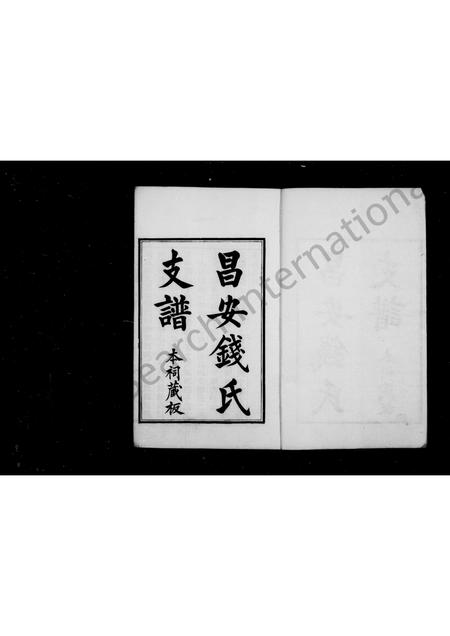 昌安錢氏
支譜
本祠藏板
earch International